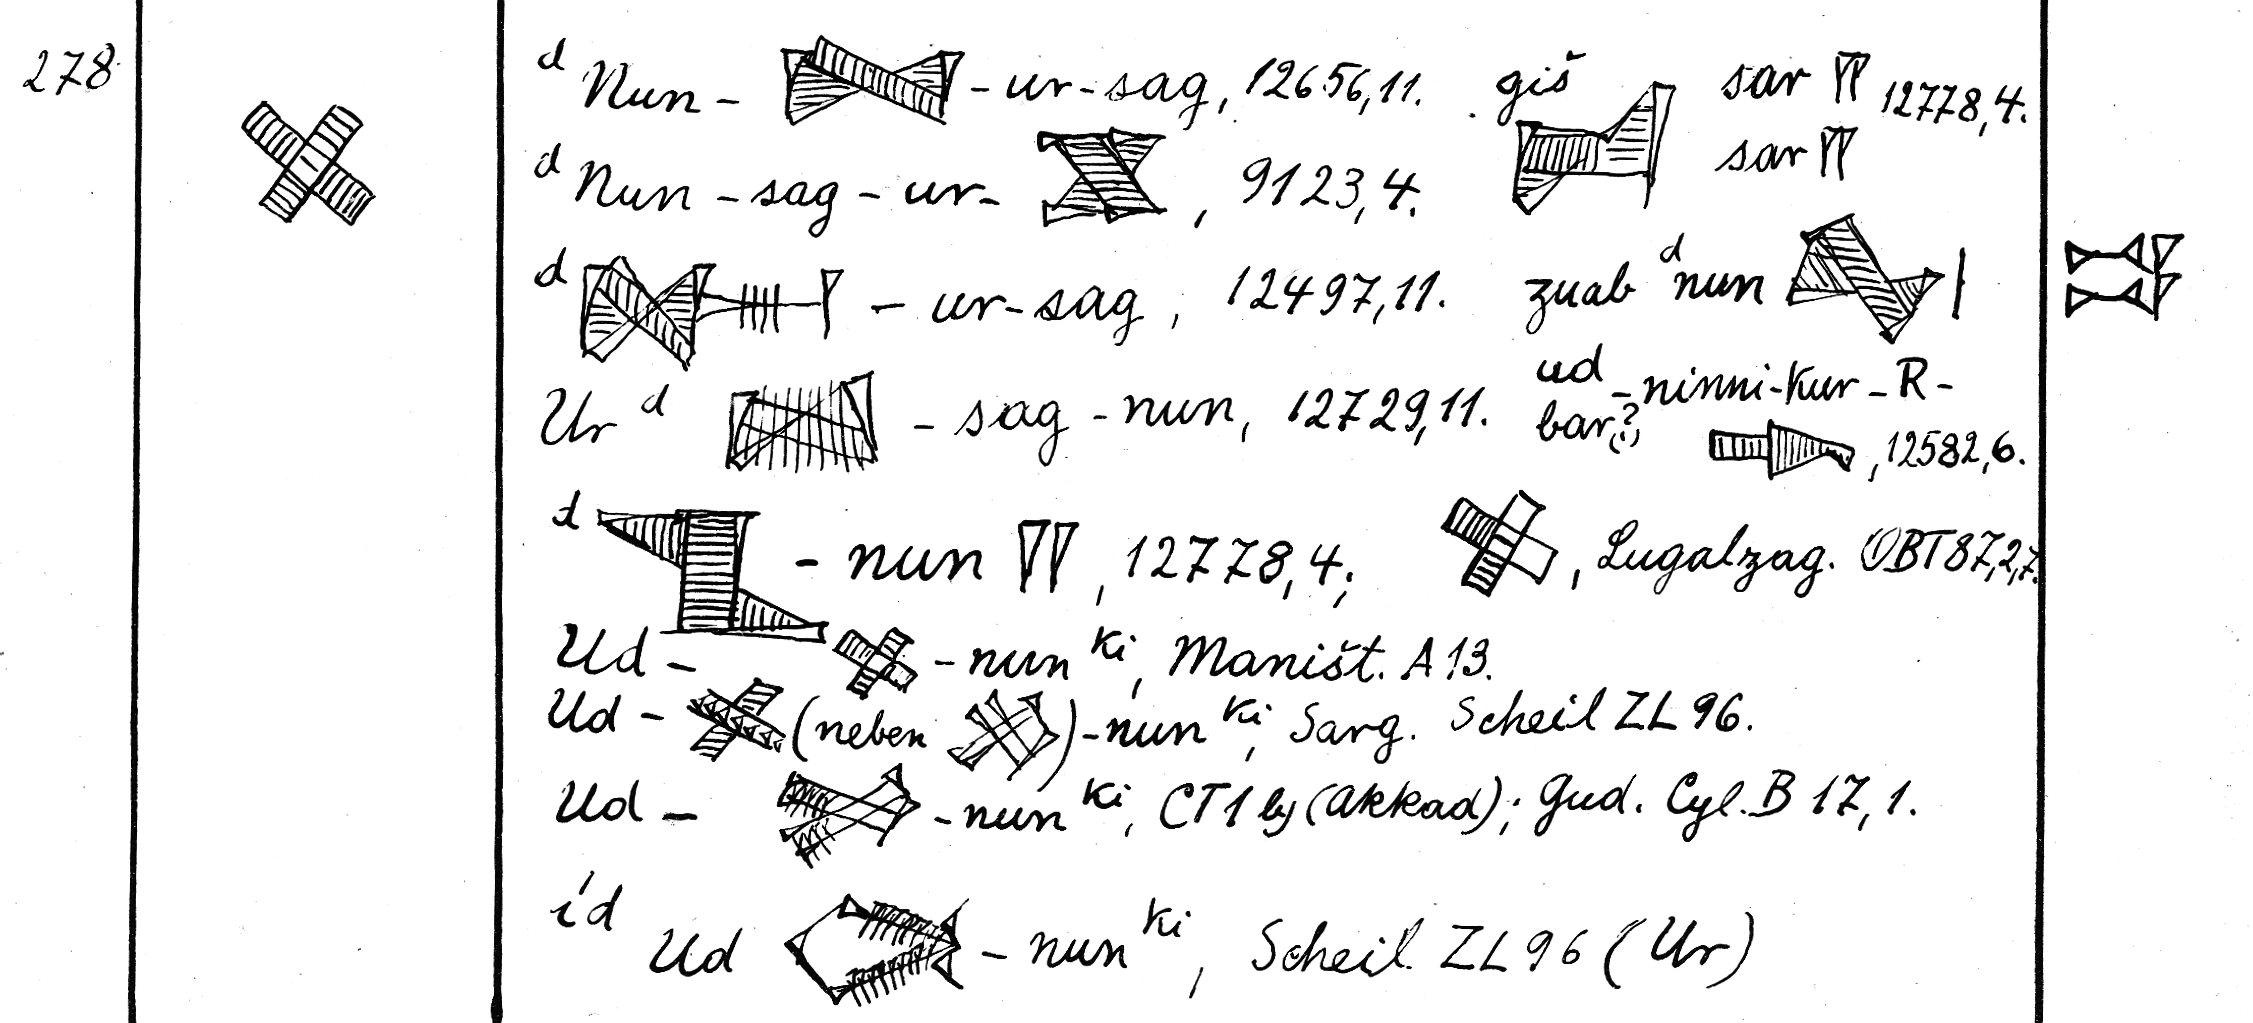 278
d Nun - - ur - sag, 12656,11. giš sar 12778,4.
d Nun - sag - ur - , 9123,4. sar
d - ur - sag, 12497,11. zuab d nun
Ur d - sag - nun, 12729,11. ud - ninni - kur - R -
bar(?) , 12582,6.
d - nun , 12778,4; , Lugalzag. OBT 87,2,7.
Ud - - nun ki, Maništ. A 13.
Ud - (neben ) - nun ki, Sarg. Scheil ZL 96.
Ud - - nun ki, CT 1 (Akkad); Gud. Cyl. B 17, 1.
íd Ud - nun ki, Scheil ZL 96 (Ur)